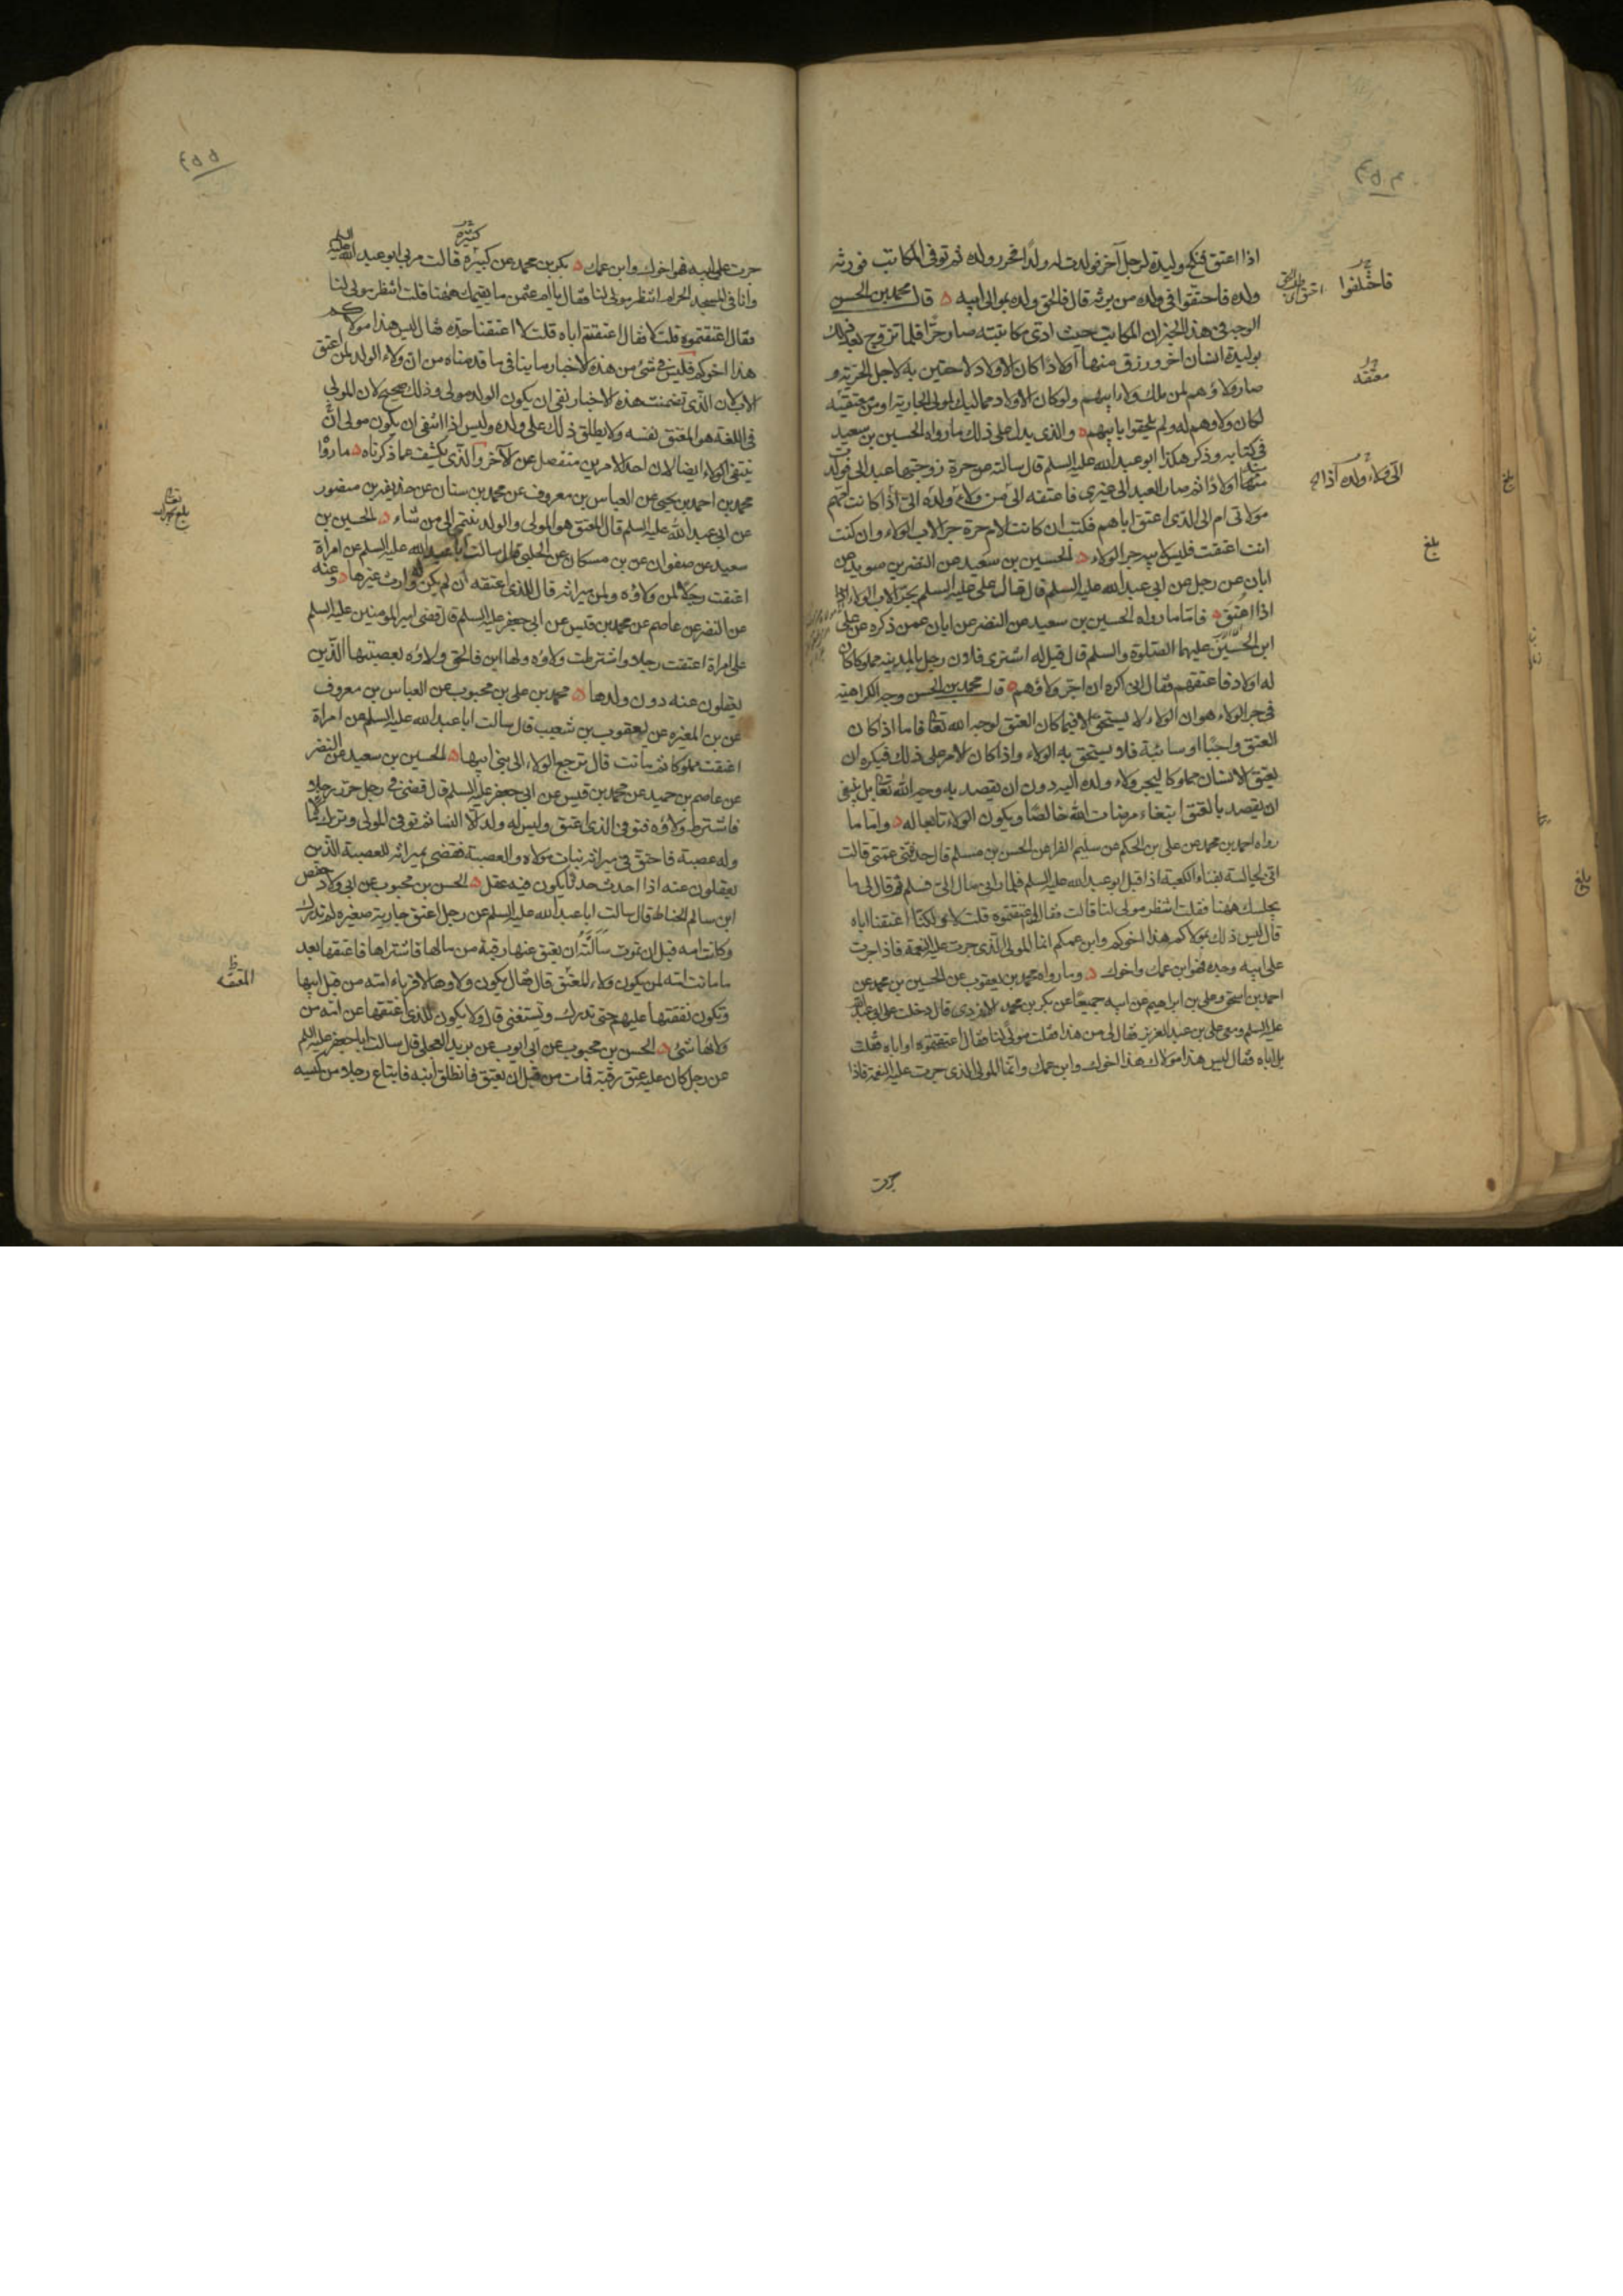 ٤٥٤
اذا اعتق فنكح وليدة لرجل آخر فولدت له ولدًا فحرر ولده ثم توفى المكاتب فورثه
ولده فاحتقوا فى ولده من يرثه قال فالحق ولده بموالى ابيه قال محمد بن الحسن
الوجه فى هذا الخبر ان المكاتب حيث ادى مكاتبته صار حرًا فلما تزوج بعد ذلك
بوليدة انسان آخر ورزق منها اولادًا كان الاولاد لاحقين به لاجل الحرية و
صار ولاؤهم لمن ملك ولاء ابيهم ولو كان الاولاد مماليك لمولى الجارية او من معتقيه
لكان ولاوهم له ولم يلحقوا بابيهم والذى يدل على ذلك ما رواه الحسين بن سعيد
فى كتابه وذكر هكذا ابو عبد الله عليه السلم قال سالته عن حرة زوجتها عبدا لى فولدت
منه اولادًا ثم صار العبد الى غيرى فاعتقه الى من ولاء ولده الىّ اذا كانت امهم
مولاتى ام الى الذى اعتق اباهم فكتب ان كانت الام حرة جر الاب الولاء وان كنت
انت اعتقت فليس لابيه جر الولاء الحسين بن سعيد عن النضر بن سويد عن
ابان عن رجل عن ابى عبد الله عليه السلم قال قال على عليه السلم يجر الاب الولاء
اذا اعتق فاما ما رواه الحسين بن سعيد عن النضر عن ابان عمن ذكره عن على
ابن الحسين عليهما الصلوة والسلم قال قيل له اشترى فلان رجل بالمدينة مملوكا كان
له اولاد فاعتقهم فقال انى اكره ان اجر ولاؤهم قال محمد بن الحسن وجه الكراهية
فى جر الولاء هو ان الولاء لا يستحق الا فيما كان العتق لوجه الله تعالى فاما اذا كان
العتق واجبًا او سائبة فلا يستحق به الولاء واذا كان الامر على ذلك فيكره ان
يعتق الانسان مملوكا ليجر ولاء ولده اليه دون ان يقصد به وجه الله تعالى بل ينبغى
ان يقصد بالعتق ابتغاء مرضات الله خالصًا ويكون الولاء تابعا له واما ما
رواه احمد بن محمد عن على بن الحكم عن سليم الفرا عن الحسن بن مسلم قال حدثتنى عمتى قالت
انى لجالسة بفناء الكعبة اذا قبل ابو عبد الله عليه السلم فلما رانى مال الىّ فسلم ثم قال لى ما
يجلسك ههنا فقلت انتظر مولى لنا قالت فقال لى اعتقتموه قلت لا ولكنا اعتقنا اباه
قال ليس ذلك بمولاكم هذا اخوكم وابن عمكم انما المولى الذى جرت عليه النعمة فاذا جرت
على ابيه وجده فهو ابن عمك واخوك وما رواه محمد بن يعقوب عن الحسين بن محمد عن
احمد بن اسحق وعلى بن ابراهيم عن ابيه جميعًا عن بكر بن محمد الازدى قال دخلت على ابى عبد الله
عليه السلم ومعى على بن عبد العزيز فقال لى من هذا فقلت مولى لنا فقال اعتقتموه او اباه فقلت
بل اباه فقال ليس هذا مولاك هذا اخوك وابن عمك وانما المولى الذى جرت عليه النعمة فاذا
جرت
فاختلفوا
معتقه
الىّ ولاء ولده اذا
بلغ
٤٥٥
جرت على ابيه فهو اخوك وابن عمك بكر بن محمد عن كبيرة قالت مر بى ابو عبد الله عليه السلم
كثيرة
وانا فى المسجد الحرام انتظر مولى لنا فقال يا ام عثمن ما يقيمك ههنا قلت انتظر مولى لنا
فقال اعتقتموه قلت لا فقال اعتقتم اباه قلت لا اعتقنا جده فقال ليس هذا مولاكم
هذا اخوكم فليس فى شئ من هذه الاخبار ما ينافى ما قدمناه من ان ولاء الولد لمن اعتق
الاب لان الذى تضمنت هذه الاخبار نفى ان يكون الولد مولى وذلك صحيح لان المولى
فى اللغة هو المعتق نفسه ولا يطلق ذلك على ولده وليس اذا انتفى ان يكون مولى ان
ينتفى الولاء ايضا لان احد الامرين منفصل عن الآخر والذى يكشف عما ذكرناه ما رواه
محمد بن احمد بن يحيى عن العباس بن معروف عن محمد بن سنان عن حذيفة بن منصور
عن ابى عبد الله عليه السلم قال المعتق هو المولى والولد ينتمى الى من شاء الحسين بن
سعيد عن صفوان عن بن مسكان عن الحلبى قال سالت ابا عبد الله عليه السلم عن امراة
اعتقت رجلا لمن ولاؤه ولمن ميراثه قال للذى اعتقه ان لم يكن له وارث غيرها وعنه
عن النضر عن عاصم عن محمد بن قيس عن ابى جعفر عليه السلم قال قضى امير المومنين عليه السلم
على امراة اعتقت رجلا واشترطت ولاؤه ولها ابن فالحق ولاؤه بعصبتها الذين
يعقلون عنه دون ولدها محمد بن على بن محبوب عن العباس بن معروف
عن بن المغيره عن يعقوب بن شعيب قال سالت ابا عبد الله عليه السلم عن امراة
اعتقت مملوكا ثم ماتت قال ترجع الولاء الى بنى ابيها الحسين بن سعيد عن النضر
عن عاصم بن حميد عن محمد بن قيس عن ابى جعفر عليه السلم قال قضى فى رجل حرر رجلا
فاشترط ولاؤه فتوفى الذى اعتق وليس له ولد الا النسا ثم توفى المولى وترك مالا
وله عصبة فاحتق فى ميراثه بنات مولاه والعصبة فقضى بميراثه للعصبة الذين
يعقلون عنه اذا احدث حدثا يكون فيه عقل الحسن بن محبوب عن ابى ولاد حفص
ابن سالم الحناط قال سالت ابا عبد الله عليه السلم عن رجل اعتق جارية صغيره لم تدرك
وكانت امه قبل ان تموت سالته ان يعتق عنها رقبة من مالها فاشتراها فاعتقها بعد
ما ماتت امه لمن يكون ولاء المعتق قال فقال يكون ولاوها لاقرباء امه من قبل ابيها
وتكون نفقتها عليهم حتى تدرك وتستغنى قال ولا يكون للذى اعتقها عن امه من
ولائها شئ الحسن بن محبوب عن ابى ايوب عن بريد العجلى قال سالت ابا جعفر عليه السلم
عن رجل كان عليه عتق رقبة فمات من قبل ان يعتق فانطلق ابنه فابتاع رجلا من كسبه
المعتقه